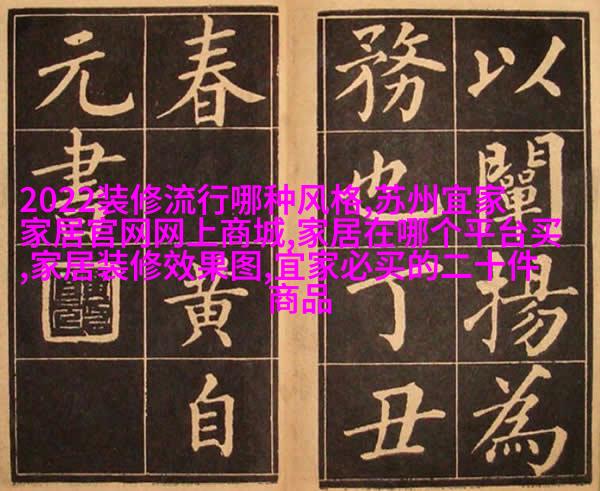 以闡揚為
務也丁丑
春
黄自
元書
2022装修流行哪种风格,苏州宜家
家居官网网上商城,家居在哪个平台买
,家居装修效果图,宜家必买的二十件
商品